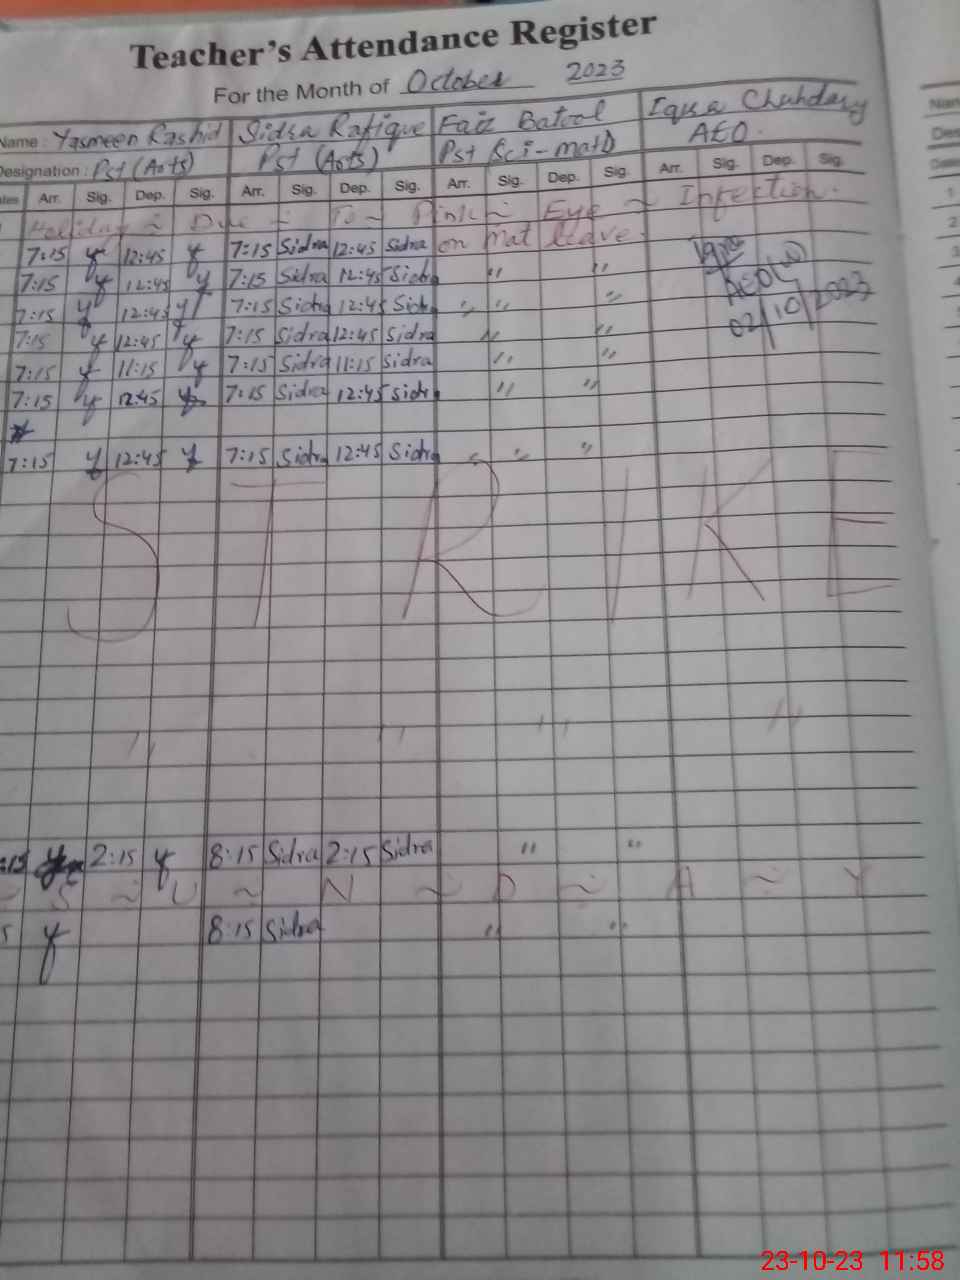 Teacher's Attendance Register
For the Month of October 2023
Name : Yasmeen Rashid Sidra Rafique Faiz Batool Iqra Chuhdary
Designation : Pst (Arts) Pst (Arts) Pst Sci-math AEO.
Arr. Sig. Dep. Sig. Arr. Sig. Dep. Sig. Arr. Sig. Dep. Sig. Arr. Sig. Dep. Sig.
Holiday ~ Due ~ To ~ Pink ~ Eye ~ Infection.
7:15 y 12:45 y 7:15 Sidra 12:45 Sidra on mat leave
7:15 y 12:45 y 7:15 Sidra 12:45 Sidra " "
7:15 y 12:45 y 7:15 Sidra 12:45 Sidra " " "
7:15 y 12:45 y 7:15 Sidra 12:45 Sidra " "
7:15 y 11:15 y 7:15 Sidra 11:15 Sidra " "
7:15 y 12:45 y 7:15 Sidra 12:45 Sidra " "
7:15 y 12:45 y 7:15 Sidra 12:45 Sidra " " "
02/10/2023
STRIKE
" " " "
:15 2:15 y 8:15 Sidra 2:15 Sidra " "
~ S ~ U ~ N ~ D ~ A ~ Y
5 y 8:15 Sidra " "
23-10-23 11:58